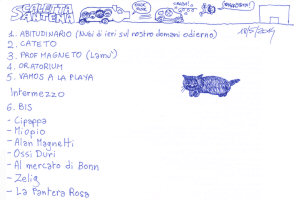 SCALETTA
SANTENA
18/5/2019
1. ABITUDINARIO (Nubi di ieri sul nostro domani odierno)
2. CATETO
3. PROF MAGNETO (Lamù)
4. ORATORIUM
5. VAMOS A LA PLAYA
Intermezzo
6. BIS
- Cipappa
- Miopio
- Alan Magnetti
- Ossi Duri
- Al mercato di Bonn
- Zelig
- La Pantera Rosa